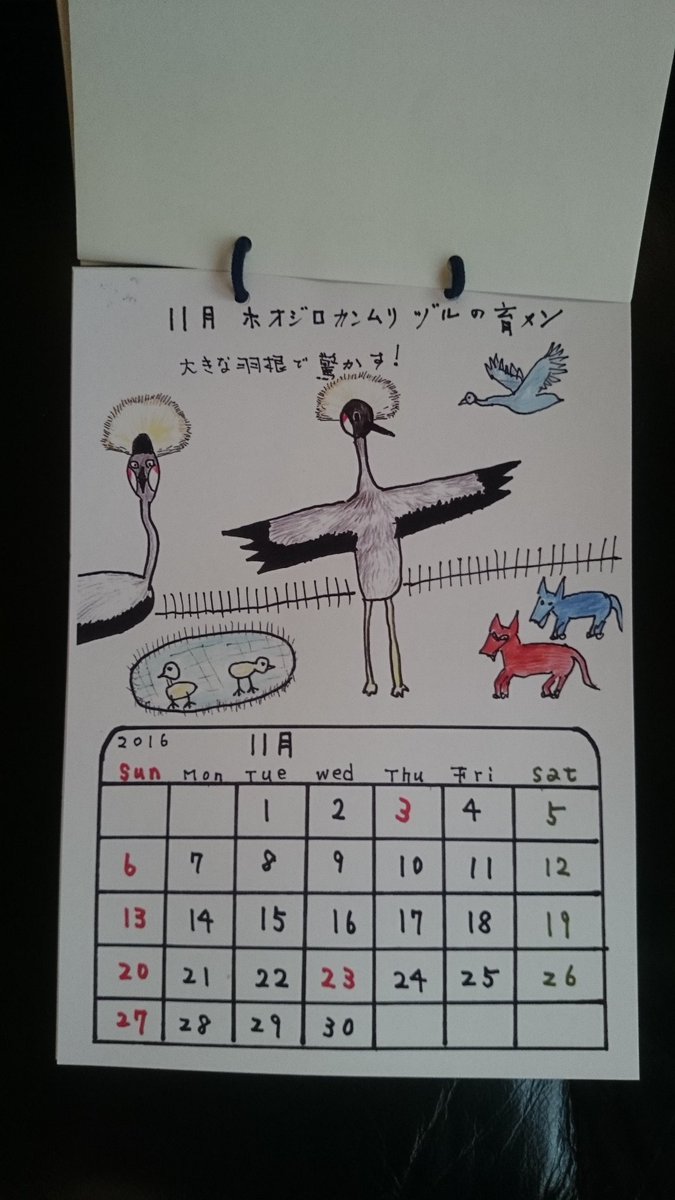 11月 ホオジロカンムリヅルの育メン
大きな羽根で驚かす!
2016 11月
Sun Mon Tue Wed Thu Fri Sat
1 2 3 4 5
6 7 8 9 10 11 12
13 14 15 16 17 18 19
20 21 22 23 24 25 26
27 28 29 30